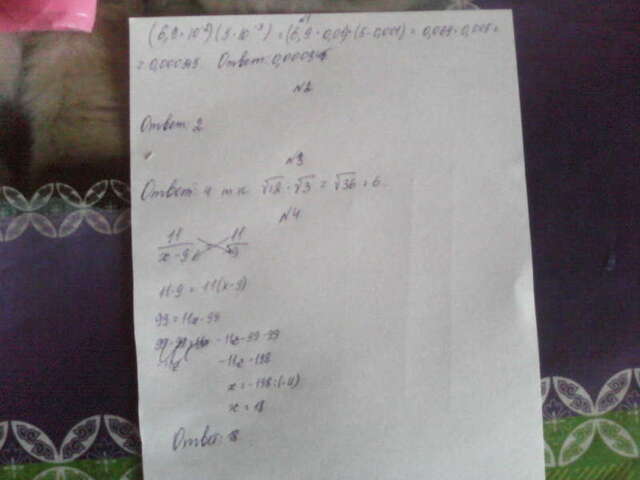 (6,9·10⁻²)(5·10⁻³) = (6,9·0,01)·(5·0,001) = 0,069·0,005=
= 0,000345 Ответ: 0,000345
№2
Ответ: 2
№3
Ответ: 4 т.к √12·√3 = √36 = 6.
№4
11 / x-9 11 / 9
11·9 = 11(x-9)
99 = 11x-99
-11x-99-99
-11x -198
x = -198:(-11)
x = 18
Ответ: 18